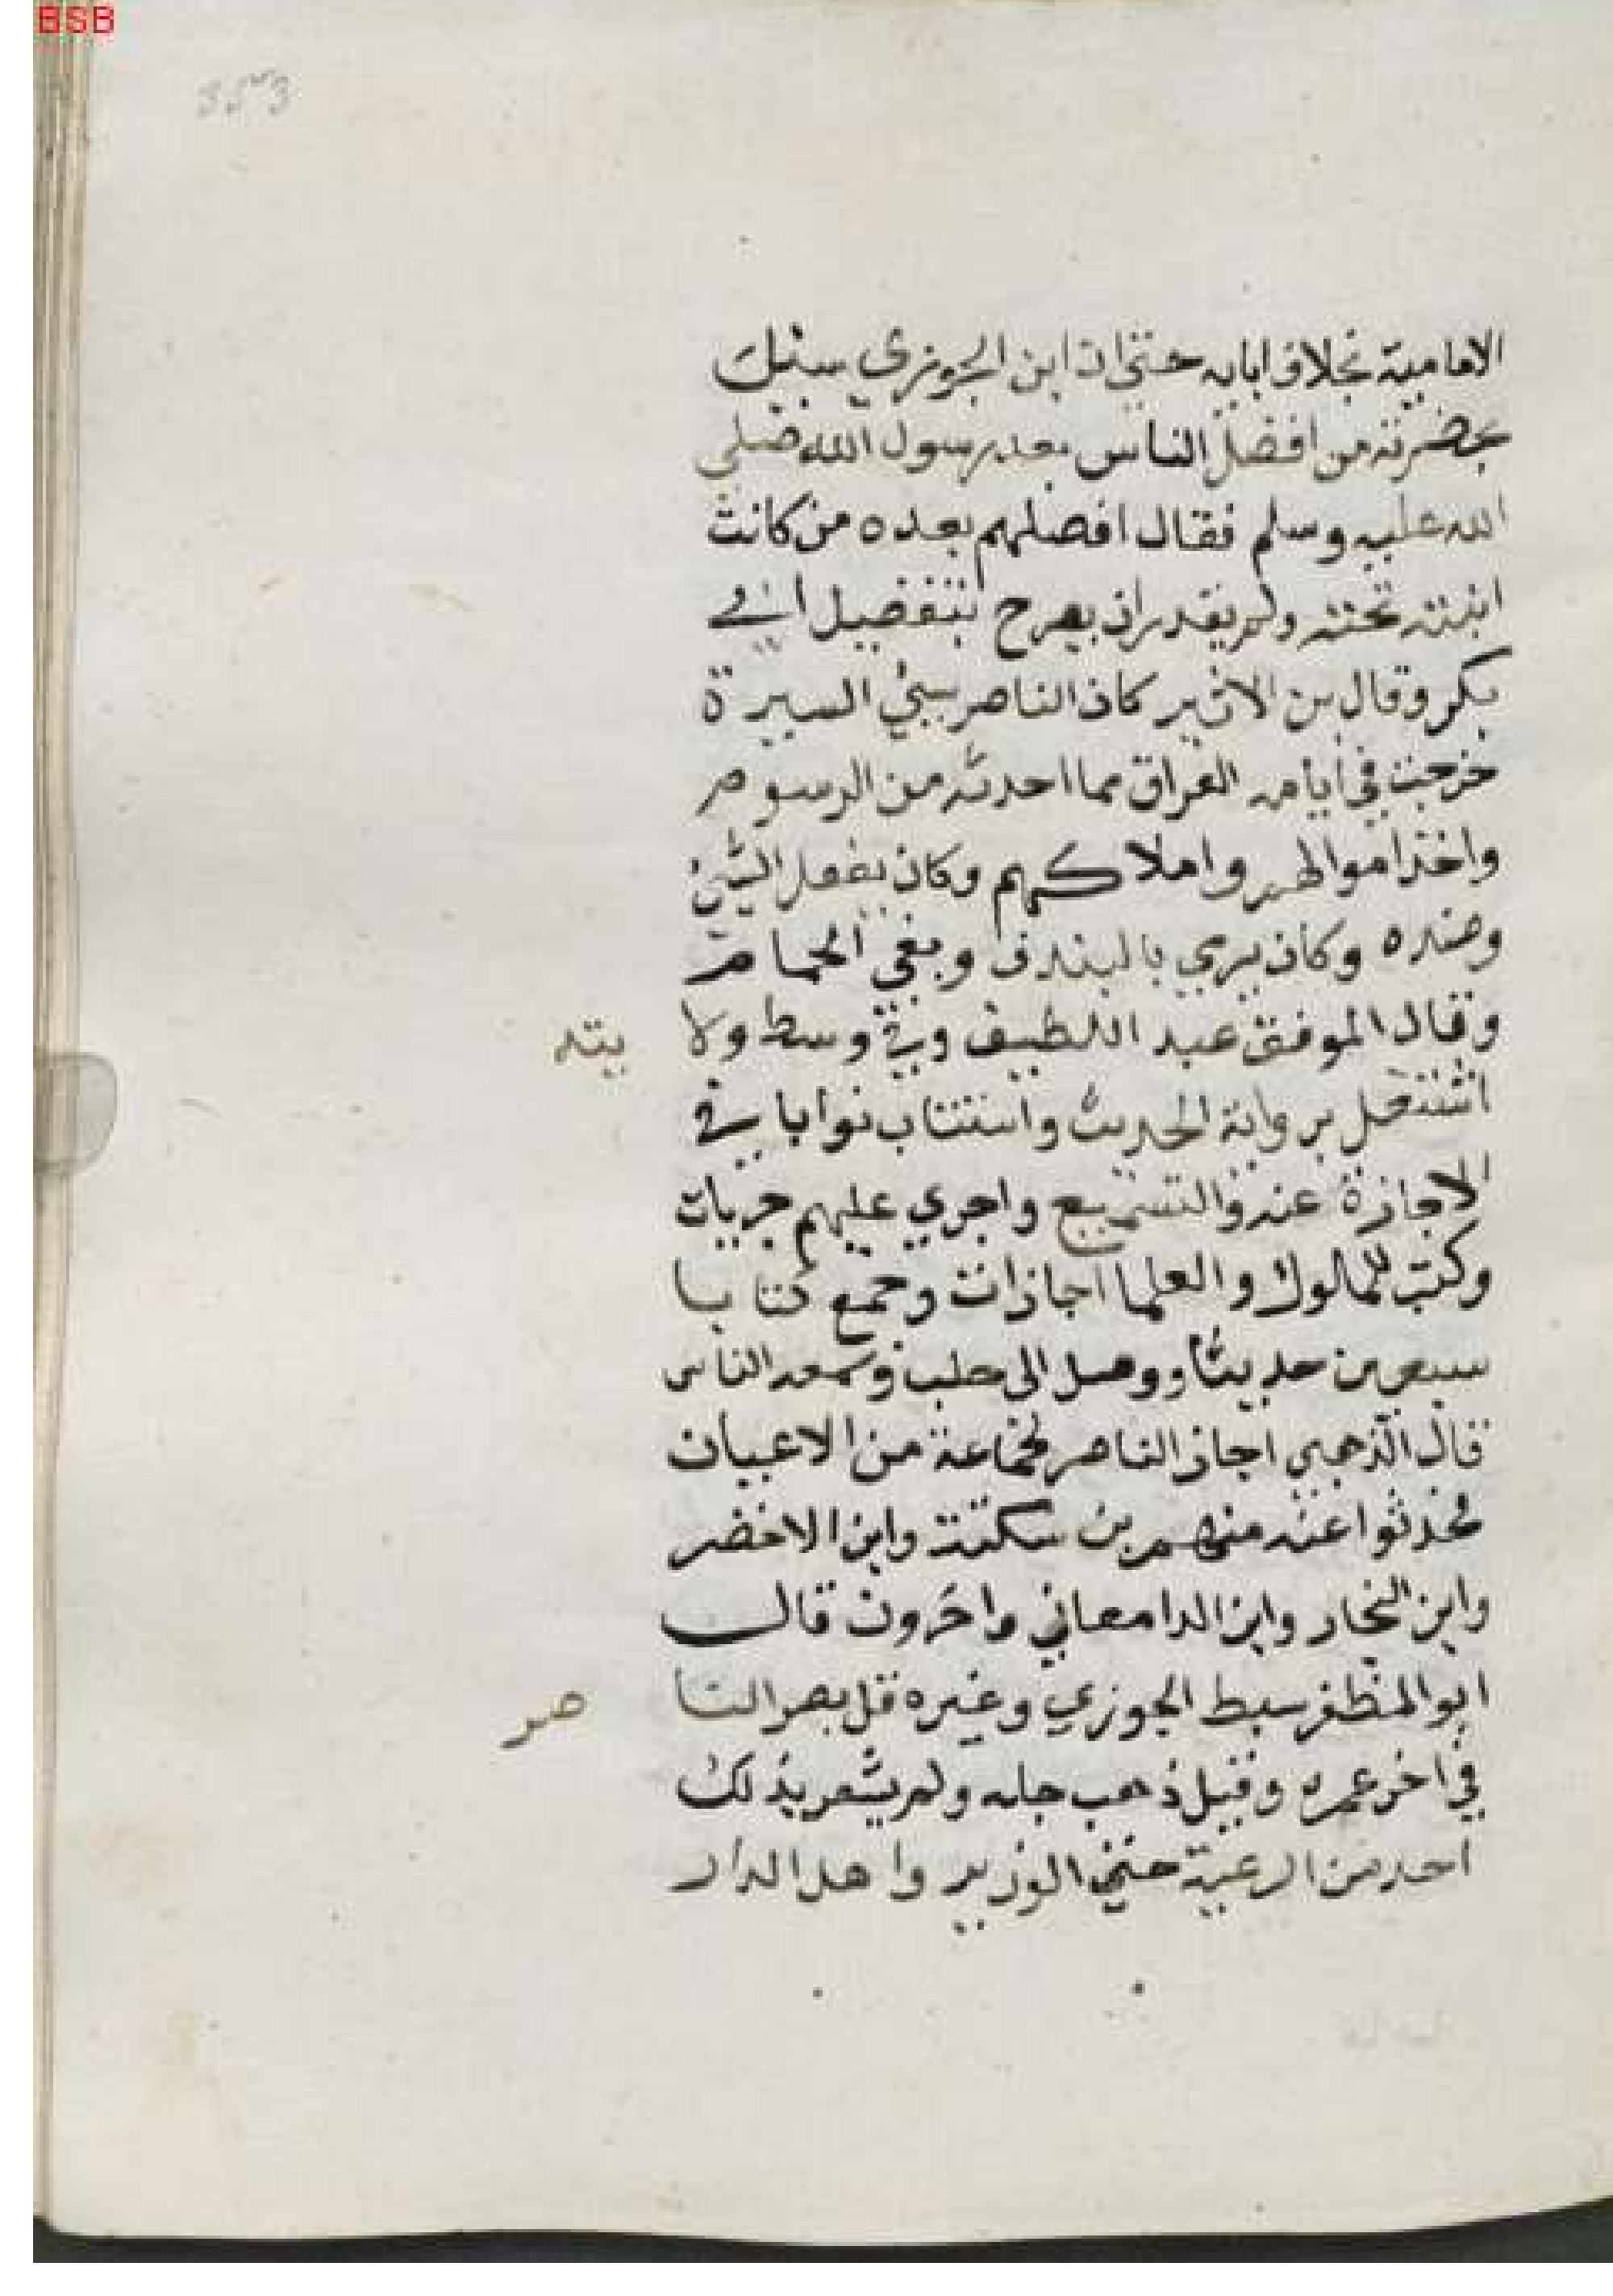 BSB
الامامية بخلاف ابايه حتى ان ابن الجوزي سئيل
بحضرته من افضل الناس بعد رسول الله صلى
الله عليه وسلم فقال افضلهم بعده من كانت
ابنته تحته ولم يقدر ان يصرح بتفضيل ابي
بكر وقال بن الاثير كان الناصر سيئ السيرة
خرجت في ايامه العراق مما احدثه من الرسوم
واخذ اموالهم واملاكهم وكان يفعل الشئ
وضده وكان يرمي بالبندق وبغي الحمام
وقال الموفق عبد اللطيف وفي وسط ولا يته
اشتغل برواية الحديث واستناب نوابا في
الاجازة عنه والتسميع واجري عليهم جريات
وكتب للملوك والعلما اجازات وجمع كتابا
سبعين حديثا ووصل الى حلب وسمعه الناس
قال الذهبي اجاز الناصر لجماعة من الاعيان
فحدثوا عنه منهم بن سكنة وابن الاخضر
وابن النجار وابن الدامعاني واخرون قال
ابو المظفر سبط الجوزي وغيره قل بصر النا صر
في اخر عمره وقيل ذهب جله ولم يشعر بذلك
احد من الرعية حتى الوزير واهل الدار